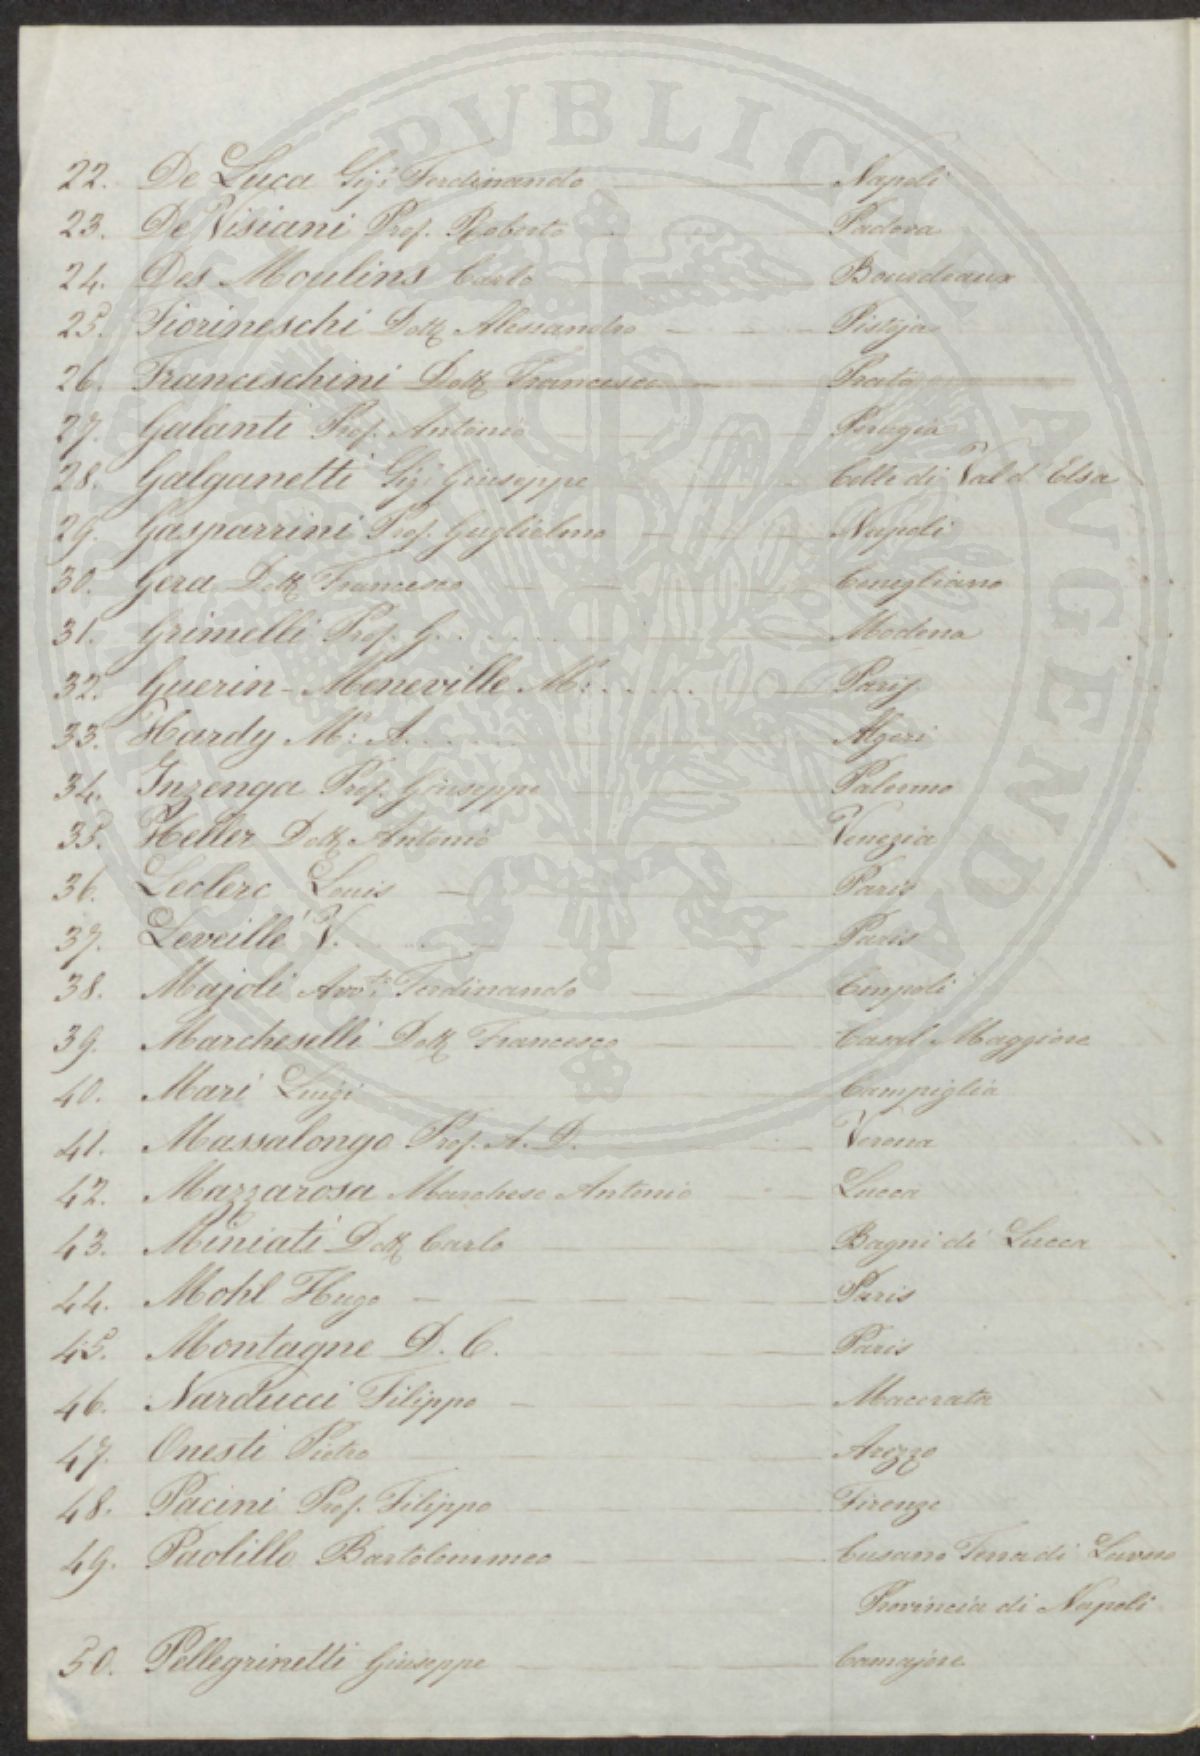 22. De Luca Sigr Ferdinando Napoli
23. De Visiani Prof. Roberto Padova
24. Des Moulins Carlo Bourdeaux
25. Fiorineschi Dott Alessandro Pistoja
26. Franceschini Dott Francesco Prato
27. Galanti Prof. Antonio Perugia
28. Galganetti Sigr Giuseppe Colle di Val d'Elsa
29. Gasparrini Prof. Guglielmo Napoli
30. Gera Dott Francesco Conegliano
31. Grimelli Prof. G. . . . . . Modena
32. Guerin-Meneville Mr: . . . . . Parigi
33. Hardy Mr: A. . . . . Algeri
34. Inzenga Prof. Giuseppe Palermo
35. Keller Dott Antonio Venezia
36. Leclerc Louis Paris
37. Leveillé V. . . . . Paris
38. Majoli Avvto: Ferdinando Empoli
39. Marcheselli Dott Francesco Casal Maggiore
40. Mari Luigi Campiglia
41. Massalongo Prof. A. D. Verona
42. Mazzarosa Marchese Antonio Lucca
43. Miniati Dott Carlo Bagni di Lucca
44. Mohl Hugo Paris
45. Montagne D. C. Paris
46. Narducci Filippo Macerata
47. Onesti Pietro Arezzo
48. Pacini Prof. Filippo Firenze
49. Paolillo Bartolommeo Cusano Terra di Lavoro
Provincia di Napoli
50. Pellegrinetti Giuseppe Camajore